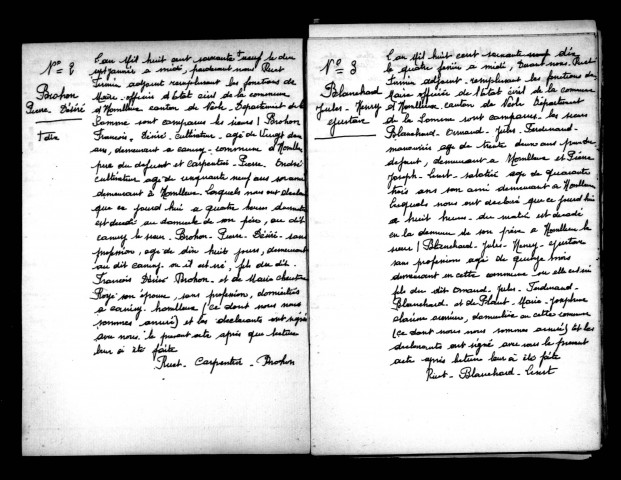 Nº 2
Brohon
Pierre Désiré
L'an Mil huit cent soixante neuf le dix
sept janvier à midi, pardevant nous Ruet
Firmin adjoint remplissant les fonctions de
Maire officier d'état civil de la commune
d'Homblleux canton de Nesle Département de la
Somme sont comparus les sieurs Brohon
François Désiré cultivateur agé de vingt deux
ans, demeurant à Canisy commune d'Homblleux
père du défunt et Carpentier Pierre André
cultivateur agé de cinquante neuf ans son ami
demeurant à Homblleux lesquels nous ont déclaré
que ce jourd'hui à quatre heures du matin
est décédé au domicile de son père, au dit
Canisy le sieur Brohon Pierre Désiré sans
profession, agé de dix huit jours, demeurant
au dit Canisy où il est né, fils du dit
François Désiré Brohon et de Marie
son épouse, sans profession, domiciliés
à Canisy Homblleux (ce dont nous nous
sommes assuré) et les déclarants ont signé
avec nous le présent acte après que lecture
leur a été faite
Ruet - Carpentier - Brohon
Nº 3
Blanchard
Jules Henry
Gustave
L'an Mil huit cent soixante neuf
le quatre février à midi, Devant nous Ruet
Firmin adjoint remplissant les fonctions de
Maire officier de l'état civil de la commune
d'Homblleux canton de Nesle Département
de la Somme sont comparus les sieurs
Blanchard Ernaud Jules Ferdinand
manouvrier agé de trente deux ans père du
défunt, demeurant à Homblleux et
Joseph agé de quarante
trois ans son ami demeurant à Homblleux
Lesquels nous ont déclaré que ce jourd'hui
à huit heures du matin est décédé
en la demeure de son père à Homblleux le
sieur Blanchard Jules Henry Gustave
sans profession agé de quinze mois
demeurant en cette commune où elle est né
fils du dit Ernaud Jules Ferdinand
Blanchard et de Marie Joséphine
domiciliée en cette commune
(ce dont nous nous sommes assuré) et les
déclarants ont signé avec nous le présent
acte après lecture leur a été faite
Ruet - Blanchard -